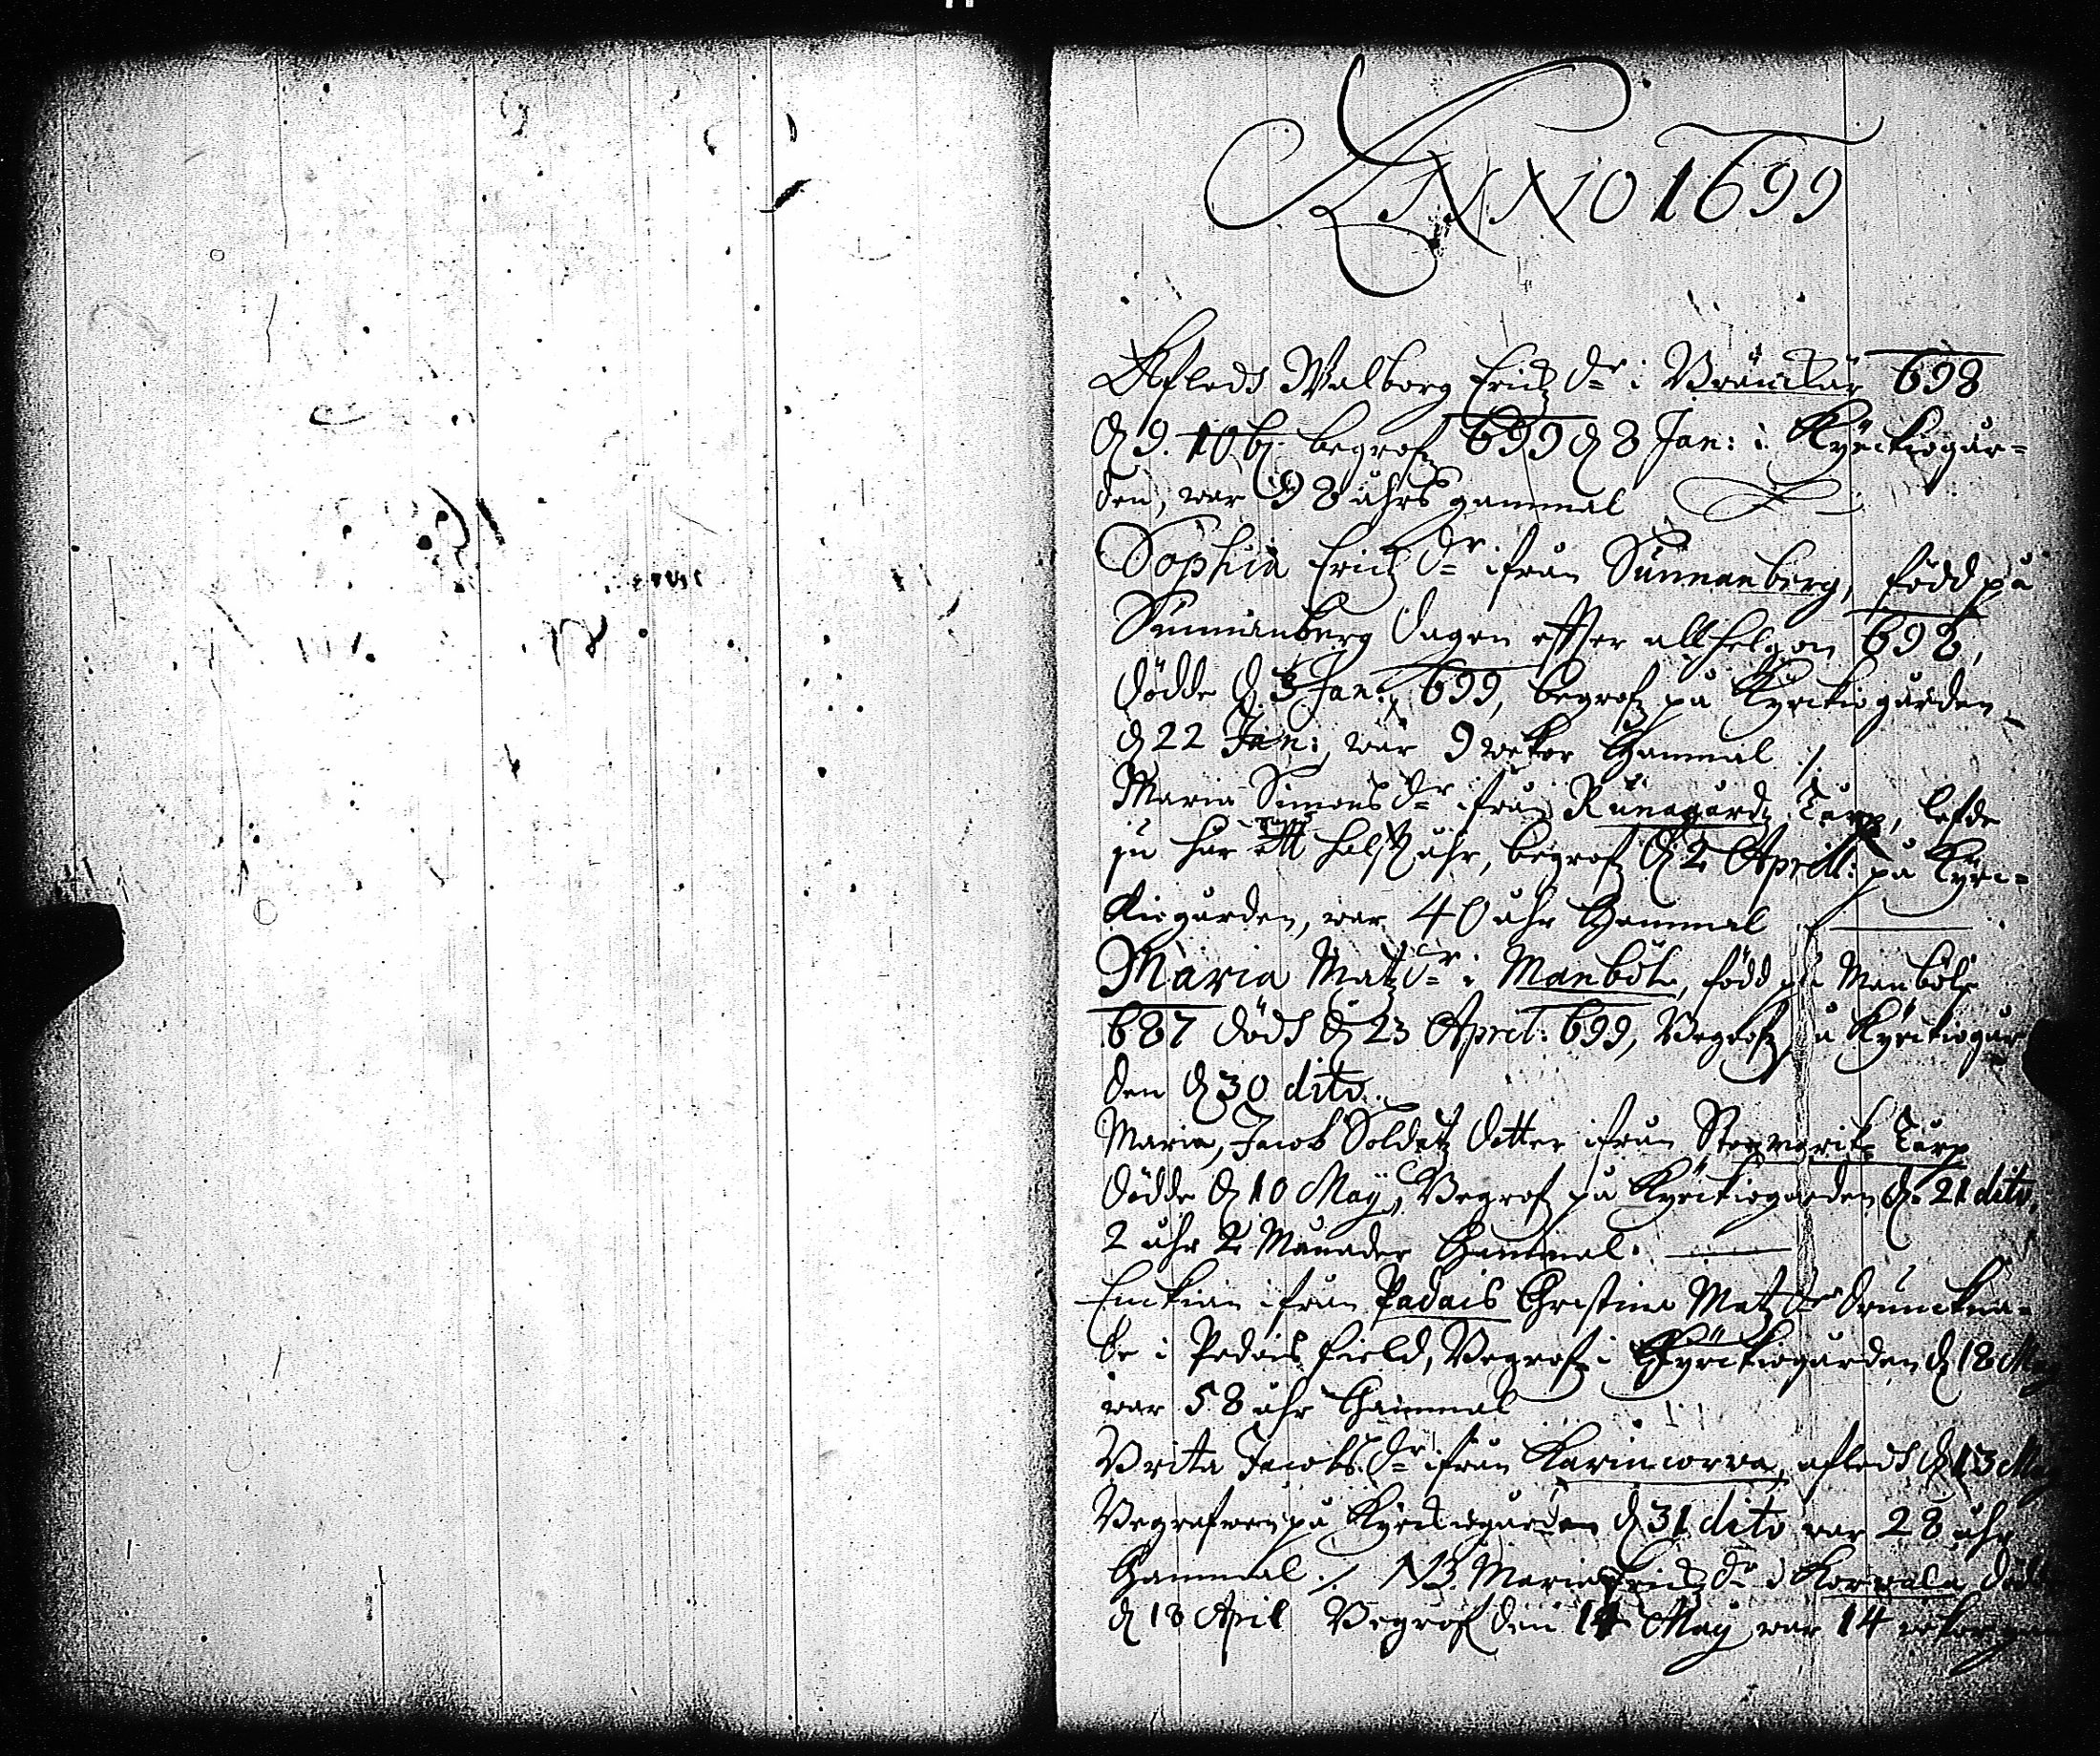 ANNO 1699
Afleds Walborg Erichz dr i Bränikär 698
d 9. 10b. begrofz 699 d 8 Jan: i Kyrckiogår=
den, war 98 åhrs gammal
Sophia Erichz dr ifrån Sunnanberg, född på
Sunnanberg dagen effter allhelgon 698,
dödde d. 3 Jan: 699, begrofz på Kyrckiogården
d 22 Jan: war 9 wekor Gammal ./.
Maria Simons dr ifrån Runagårdz Tårp, lefde
här halft åhr, begrofz d 2 Aprill: på Kyrc=
kiogården, war 40 åhr Gammal
Maria Matz dr i Manböle, född på Manböle
687 döds d 23 April: 699, Begrofz på Kyrckiogår
den d 30 dito.
Maria, Jacob Soldatz dotter ifrån Tårp
dödde d 10 Maÿ, Begrofz på Kyrckiogården d. 21 dito,
2 åhr 2 Månader Gammal.
Enckian ifrån Padais Christina Matz dr drunckna=
de i Padais field, Begrofz i Kyrckiogården d 18 Maÿ
war 58 åhr Gammal
Brita Jacobs dr ifrån Karincorva, afleds d 13 Maÿ
Begrafwen på Kyrckiogården d 31 dito war 28 åhr
Gammal ./. NB. Maria Erichz dr i Korvala dödde
d 18 April Begrofz den 14 Maÿ war 14 wekor gam